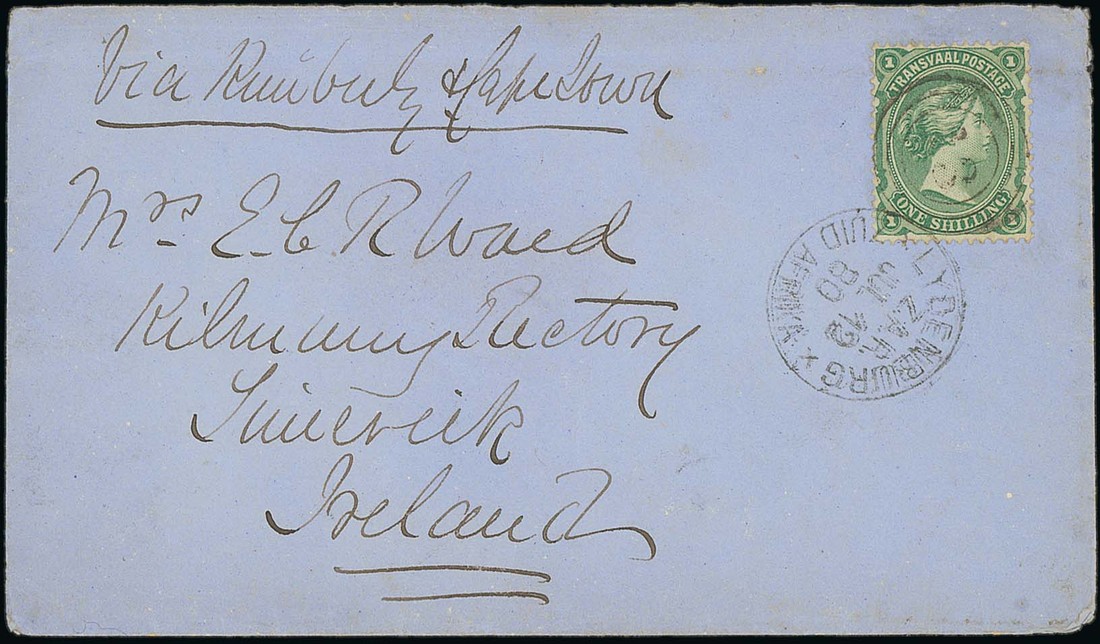 Via Kimberly & Cape Town
Mrs E C R Ward
Kilmurry Rectory
Limerick
Ireland
1 TRANSVAAL POSTAGE 1
1 ONE SHILLING 1
LYDENBURG
Z.A.R.
JUL 19
80
ZUID AFRIKA